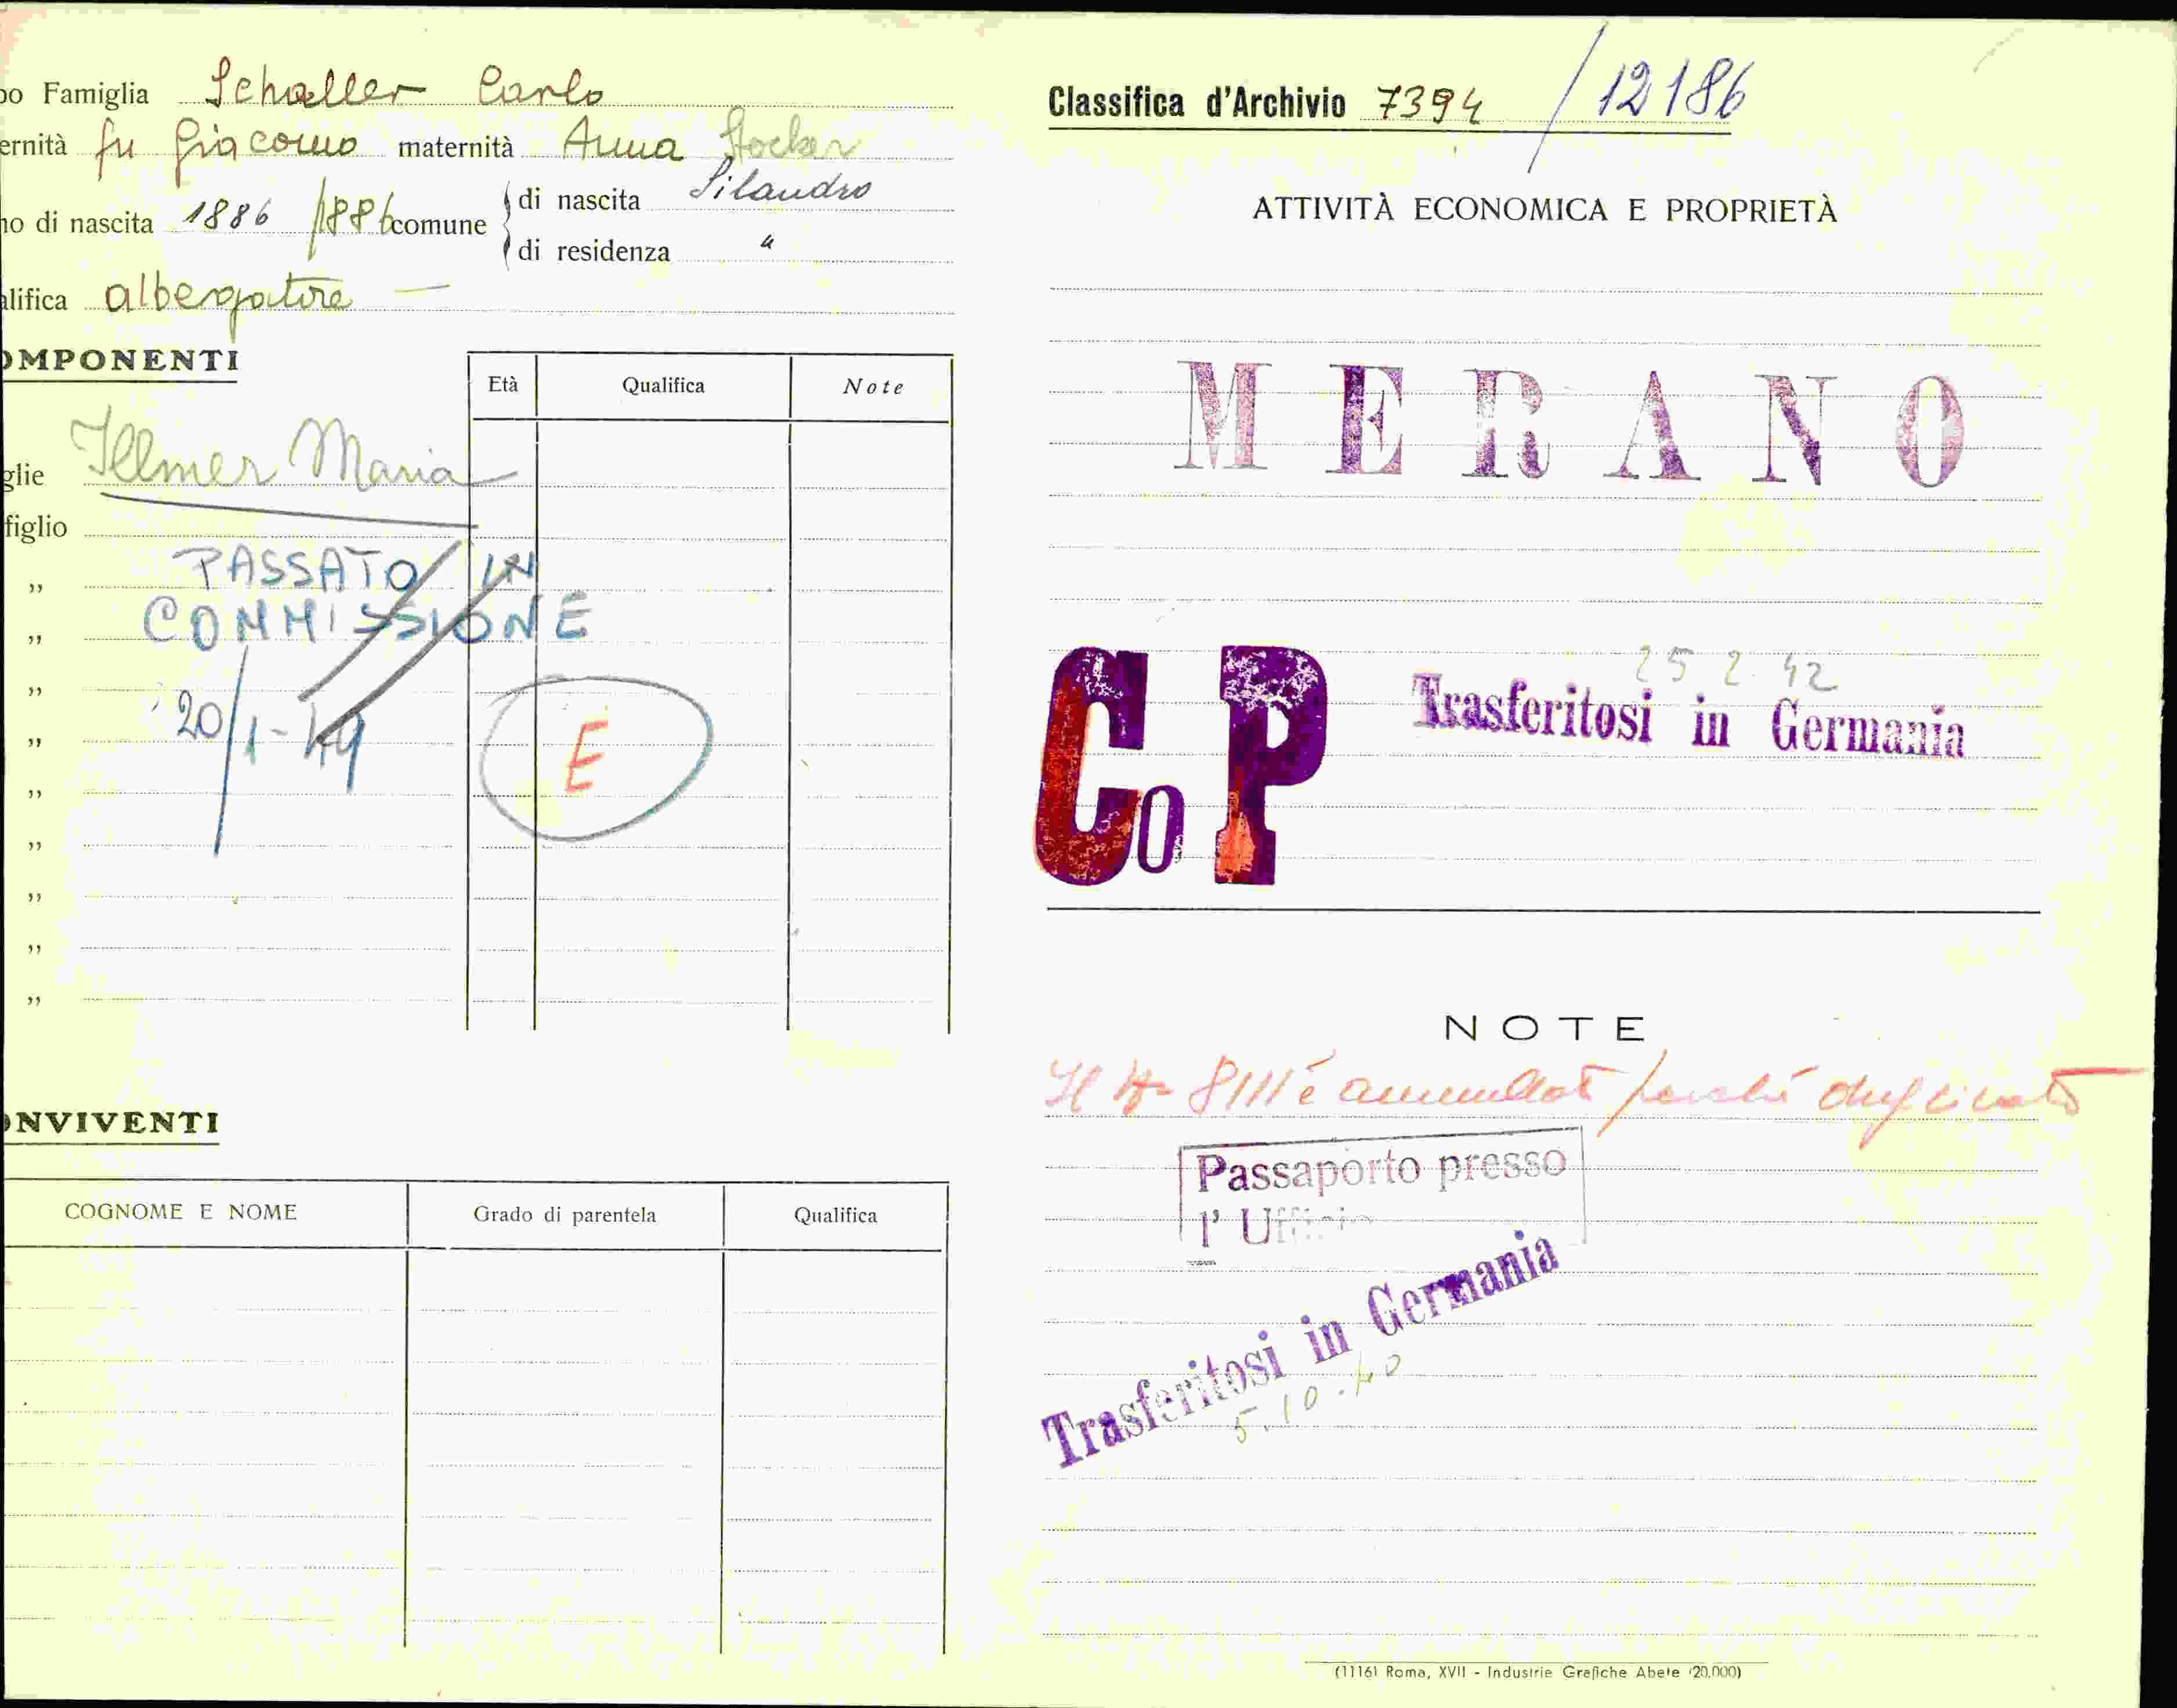 po Famiglia Schaller Carlo
ernità fu Giacomo maternità Anna Stocker
no di nascita 1886 /1886 comune di nascita Silandro
di residenza "
alifica albergatore —
OMPONENTI
Età Qualifica Note
glie Illmer Maria
figlio
" PASSATO IN
" COMMISSIONE
"
" 20/1-49 E
"
"
"
"
"
ONVIVENTI
COGNOME E NOME Grado di parentela Qualifica
Classifica d'Archivio 7394 / 12186
ATTIVITÀ ECONOMICA E PROPRIETÀ
MERANO
25 2 42
CoP Trasferitosi in Germania
NOTE
Il N° 8111 è annullato perché duplicato
Passaporto presso
l' Ufficio
Trasferitosi in Germania
5.10.40
(1116) Roma, XVII - Industrie Grafiche Abete (20.000)